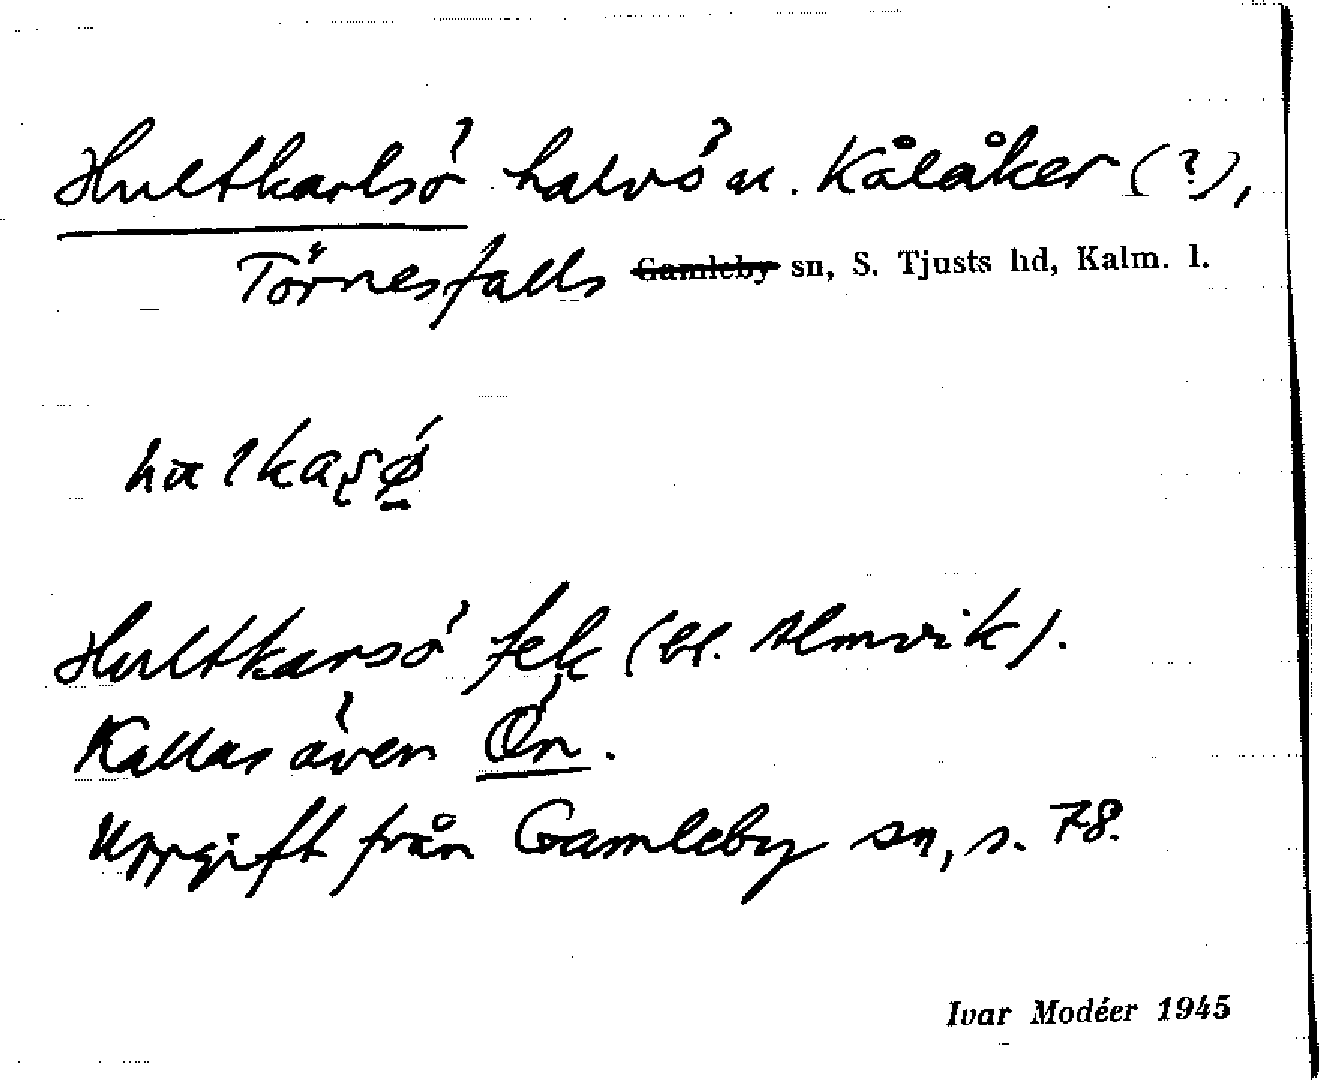 Hultkarlsö halvö u. Kålåker (?),
Törnesfalls Gamleby sn, S. Tjusts hd, Kalm. l.
Hultkarsö fek (bl. Almvik).
Kallas även Ön.
Uppgift från Gamleby sn, s. 78.
Ivar Modéer 1945